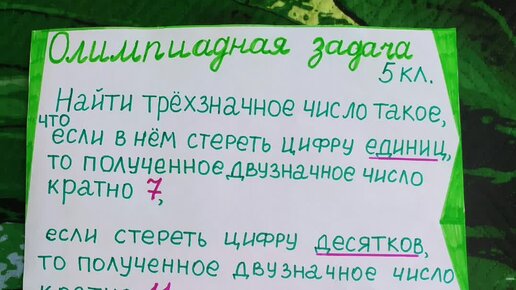 Олимпиадная задача
5 кл.
Найти трёхзначное число такое,
что
если в нём стереть цифру единиц,
то полученное двузначное число
кратно 7,
если стереть цифру десятков,
то полученное двузначное число
кратно 11